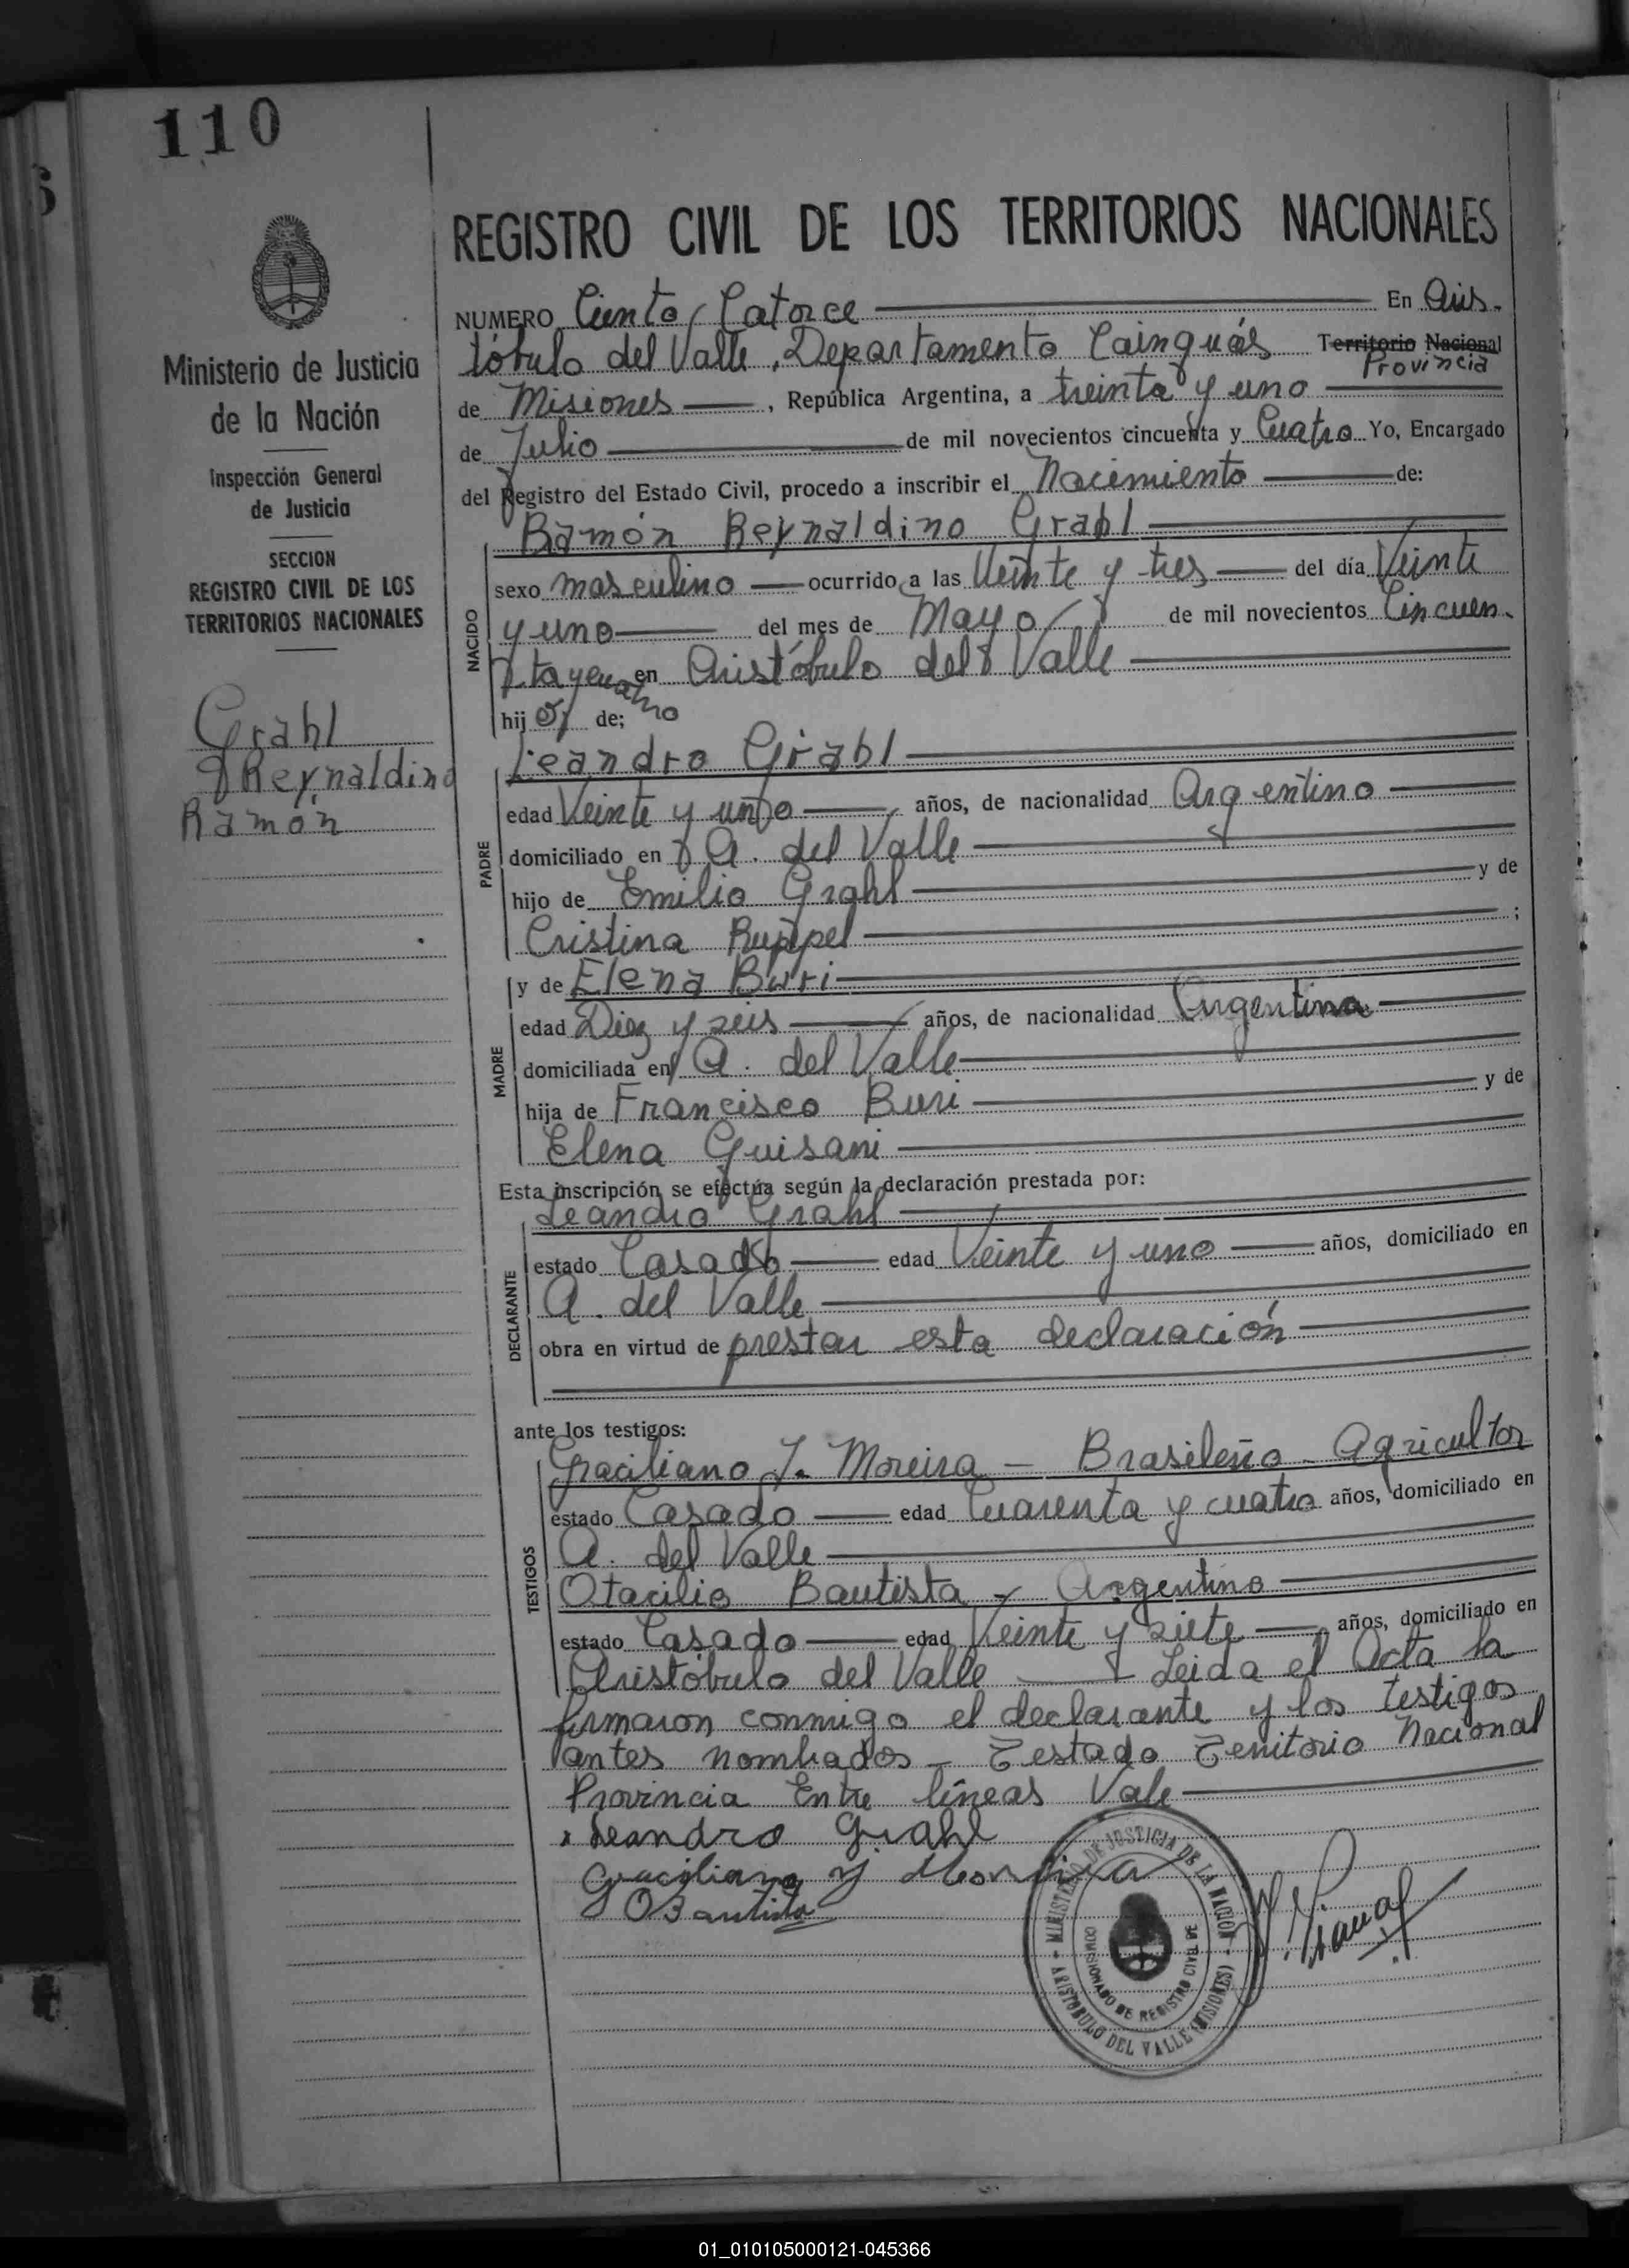 110
6
Ministerio de Justicia
de la Nación
Inspección General
de Justicia
SECCION
REGISTRO CIVIL DE LOS
TERRITORIOS NACIONALES
Grahl
Reynaldino
Ramón
REGISTRO CIVIL DE LOS TERRITORIOS NACIONALES
NUMERO Ciento Catorce En Aris-
tóbulo del Valle, Departamento Cainguás Territorio Nacional
Provincia
de Misiones, República Argentina, a treinta y uno
de Julio de mil novecientos cincuenta y Cuatro Yo, Encargado
del Registro del Estado Civil, procedo a inscribir el Nacimiento de:
Ramón Reynaldino Grahl
NACIDO
sexo masculino ocurrido a las Veinte y tres del día Veinte
y uno del mes de Mayo de mil novecientos Cincuen-
ta y cuatro en Aristóbulo del Valle
hijo de;
PADRE
Leandro Grahl
edad Veinte y uno años, de nacionalidad Argentino
domiciliado en A. del Valle
hijo de Emilio Grahl y de
Cristina Ruppel;
MADRE
y de Elena Buri
edad Diez y seis años, de nacionalidad Argentina
domiciliada en A. del Valle
hija de Francisco Buri y de
Elena Guisani
Esta inscripción se efectúa según la declaración prestada por:
DECLARANTE
Leandro Grahl
estado Casado edad Veinte y uno años, domiciliado en
A. del Valle
obra en virtud de prestar esta declaración
ante los testigos:
TESTIGOS
Graciliano J. Moreira - Brasileño - Agricultor
estado Casado edad Cuarenta y cuatro años, domiciliado en
A. del Valle
Otacilio Bautista - Argentino
estado Casado edad Veinte y siete años, domiciliado en
Aristóbulo del Valle Leida el Acta la
firmaron conmigo el declarante y los testigos
antes nombrados - Testado Territorio Nacional
Provincia Entre líneas Vale
Leandro Grahl
Graciliano J Moreira
O Bautista
MINISTERIO DE JUSTICIA DE LA NACION
COMISIONADO DE REGISTRO CIVIL DE
ARISTOBULO DEL VALLE (MISIONES)
01_010105000121-045366